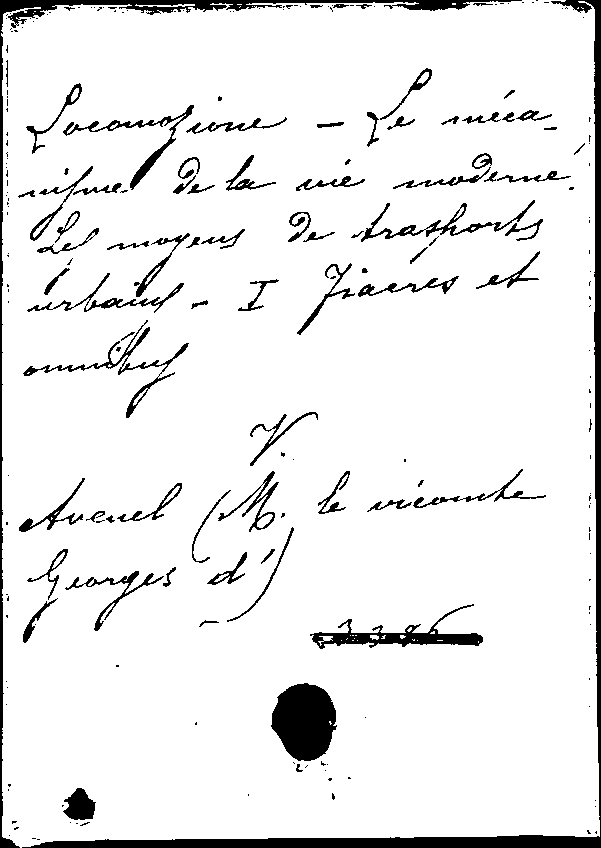 Locomozione - Le méca-
nisme de la vie moderne.
Les moyens de trasports
urbains - I Fiacres et
omnibus
V.
Avenel (M. le vicomte
Georges d')